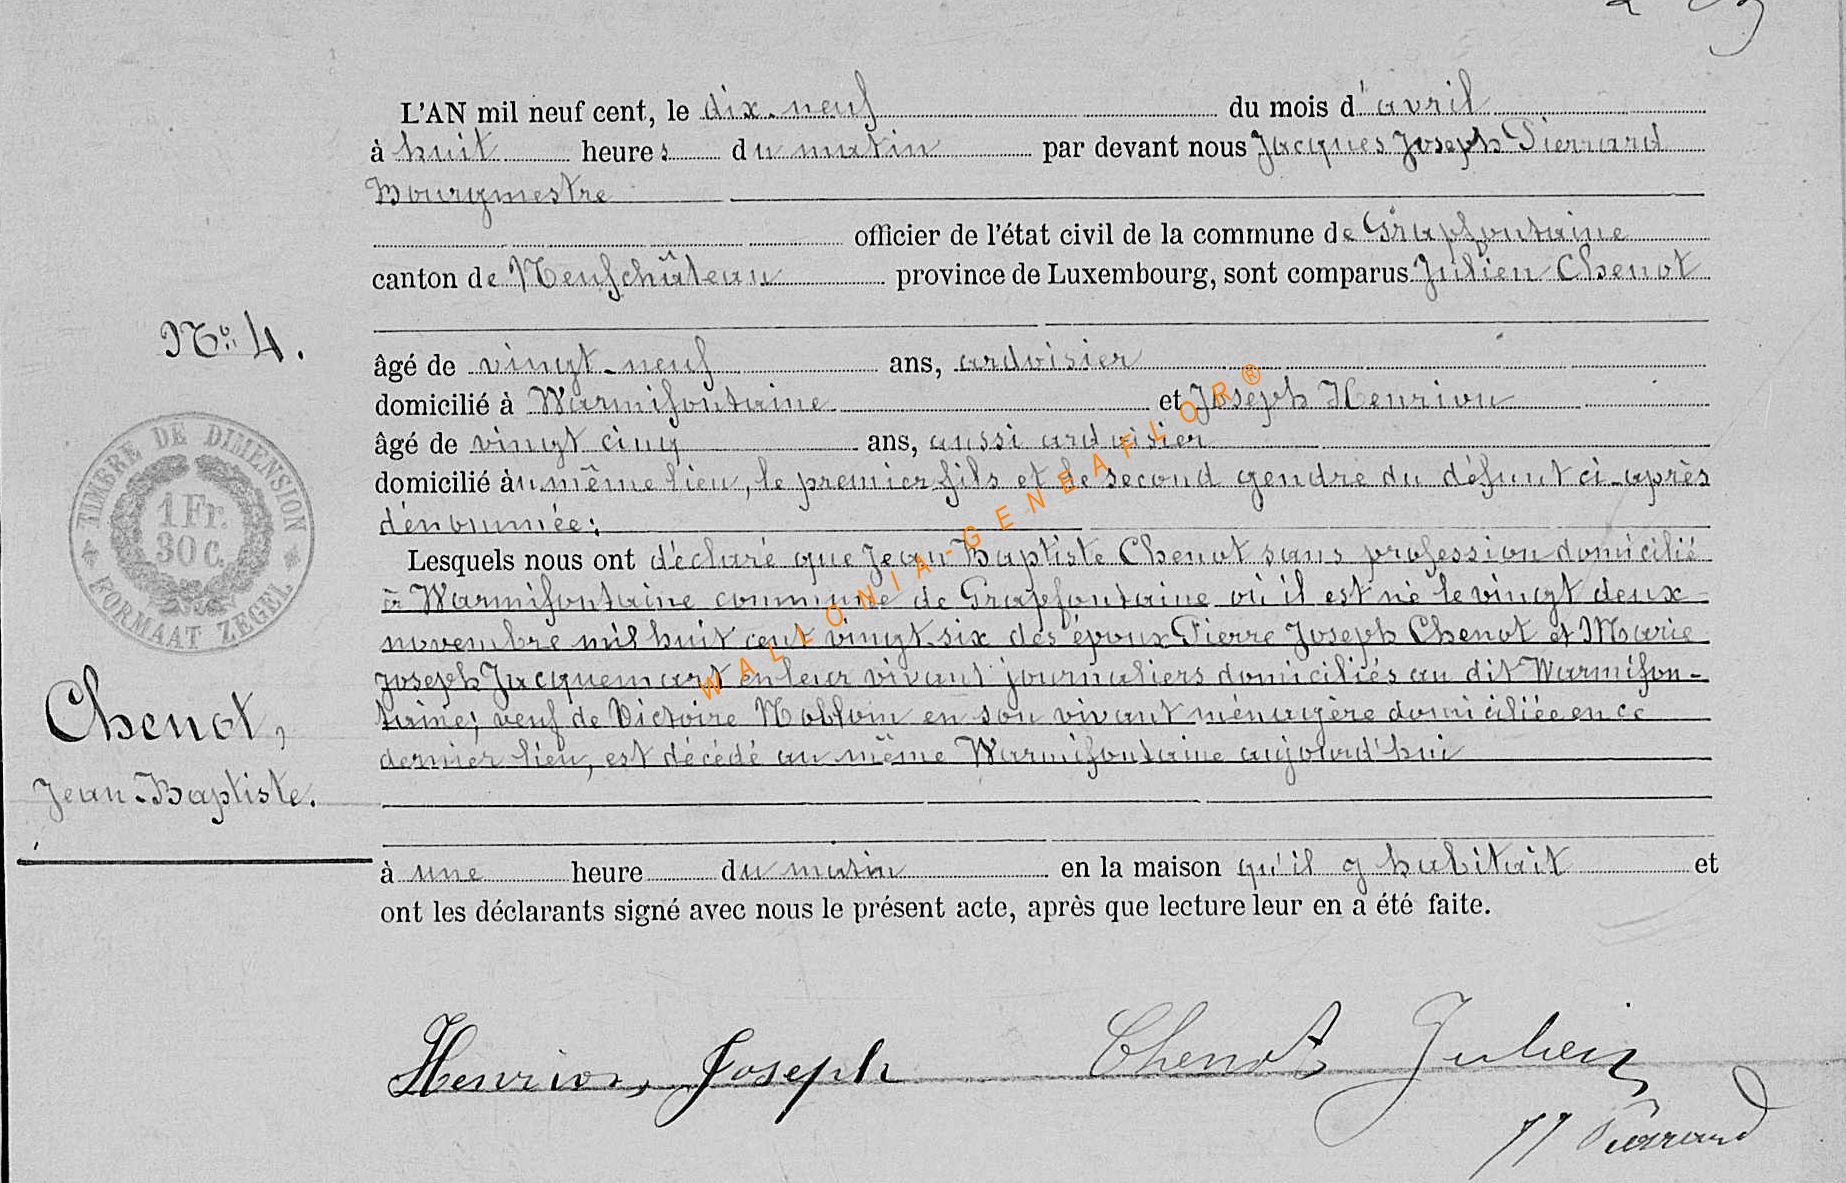 L'AN mil neuf cent, le dix-neuf du mois d'avril
à huit heures du matin par devant nous Jacques Joseph Pierrard
Bourgmestre
officier de l'état civil de la commune de Grapfontaine
canton de Neufchâteau province de Luxembourg, sont comparus Julien Chenot
No. 4.
âgé de vingt-neuf ans, ardoisier
domicilié à Warmifontaine et Joseph Henrion
âgé de vingt cinq ans, aussi ardoisier
domicilié au même lieu, le premier fils et le second gendre du défunt ci-après
dénommée;
TIMBRE DE DIMENSION
1 Fr.
30 c.
FORMAAT ZEGEL
Lesquels nous ont déclaré que Jean Baptiste Chenot sans profession domicilié
à Warmifontaine commune de Grapfontaine où il est né le vingt deux
novembre mil huit cent vingt-six des époux Pierre Joseph Chenot et Marie
Joseph Jacquemart en leur vivant journaliers domiciliés au dit Warmifon-
taine; veuf de Victoire en son vivant ménagère domiciliée en ce
dernier lieu, est décédé au même Warmifontaine aujourd'hui
Chenot,
Jean-Baptiste.
à une heure du matin en la maison qu'il y habitait et
ont les déclarants signé avec nous le présent acte, après que lecture leur en a été faite.
Henrion, Joseph
Chenot Julien
JJ Pierrard
WALLONIA-GENEAFLOR®